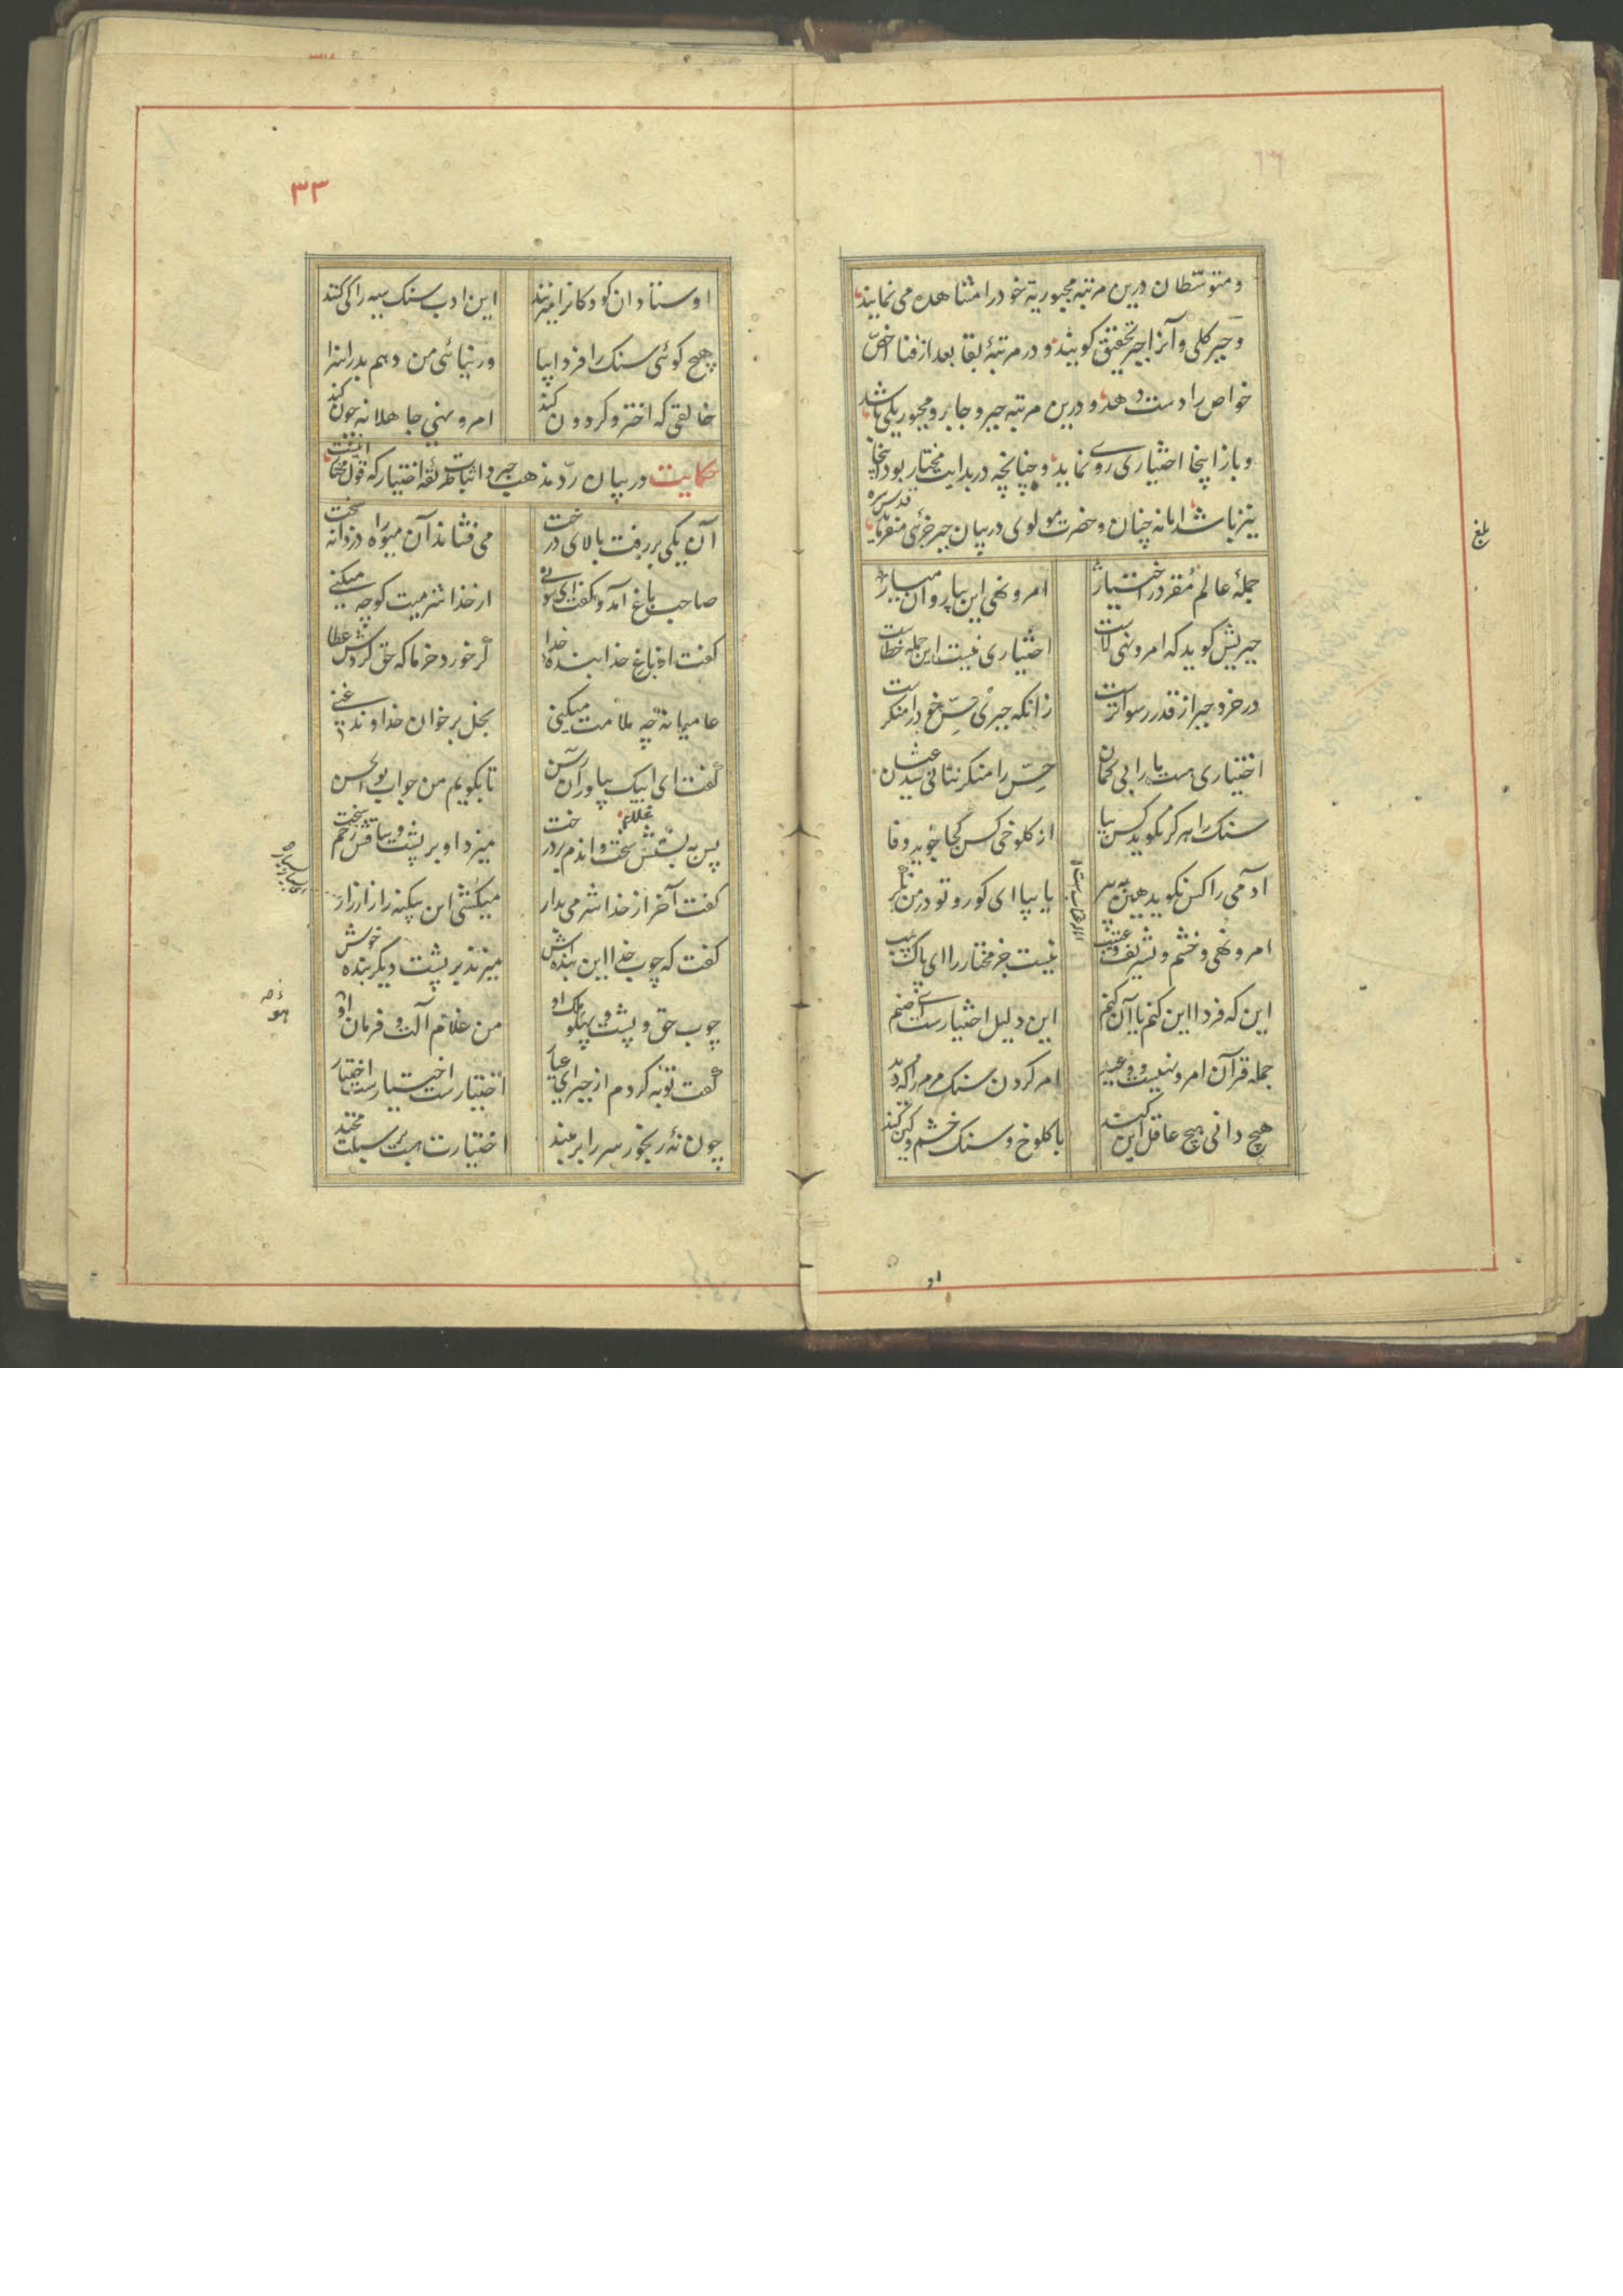 و متوسّطان درین مرتبه مجبوریة خود را مشاهده می نمایند
و جبر کلی و آنرا جبر تحقیق کویند و در مرتبهٔ بقا بعد از فنا اخصّ
خواص را دست دهد و درین مرتبه جبر و جابر و مجبور یکی باشد
و باز اینجا اختیاری روی نماید و چنانچه در بدایت مختار بود اینجا
نیز باشد اما نه چنان و حضرت مولوی قدس سره در بیان جبر جزئی میفرماید
جملهٔ عالم مُقر در اختیار امر و نهی این بیار و آن میار
جبریش کوید که امر و نهی لاست اختیاری نیست این جمله خطاست
در خرد جبر از قدر رسواترست زانکه جبری حسّ خود را منکرست
اختیاری هست ما را بی کمان حسّ را منکر نتانی شد عیان
سنک را هرکز بکوید کس بیا از کلوخی کس کجا جوید وفا
آدمی را کس نکوید هین بپر یا بیا ای کور و تو در من نکر
امر و نهی و خشم و تشریف و عتیب نیست جز مختار را ای پاک جیب
این که فردا این کنم یا آن کنم این دلیل اختیارست ای صنم
جمله قرآن امر و نهیست و وعید امر کردن سنک مرمر را که دید
هیچ دانی هیچ عاقل این کند با کلوخ و سنک خشم و کین کند
بلغ
او
٣٣
اوستادان کودکانرا میزنند این ادب سنک سیه را کی کنند
هیچ کوئی سنک را فردا بیا ور نیائی من دهم بد را سزا
خالقی که اختر و کردون کند امر و نهی جاهلانه چون کند
حکایت در بیان ردّ مذهب جبر و اثبات اختیار که قول اینست
آن یکی بر رفت بالای درخت می فشاند آن میوه را دزدانه سخت
صاحب باغ آمد و کفت ای دنی از خدا شرمیت کو چه میکنی
کفت از باغ خدا بندهٔ خدا کر خورد خرما که حق کردش عطا
عامیانه چه ملامت میکنی بخل بر خوان خداوند غنی
کفت ای ایبک بیاور آن رسن تا بکویم من جواب بو الحسن
پس به بستش سخت آندم بر درخت میزد او بر پشت و ساقش زخم سخت
کفت آخر از خدا شرمی بدار میکشی این بیکنه را زار زار
کفت که چوب خدا این بنده اش میزند بر پشت دیکر بنده خوش
چوب حق و پشت و پهلو ملک او من غلام آلت و فرمان او
کفت توبه کردم از جبر ای عیار اختیارست اختیارست اختیار
چون نهٔ رنجور سر را بر مبند اختیارت هست بر سبلت مخند